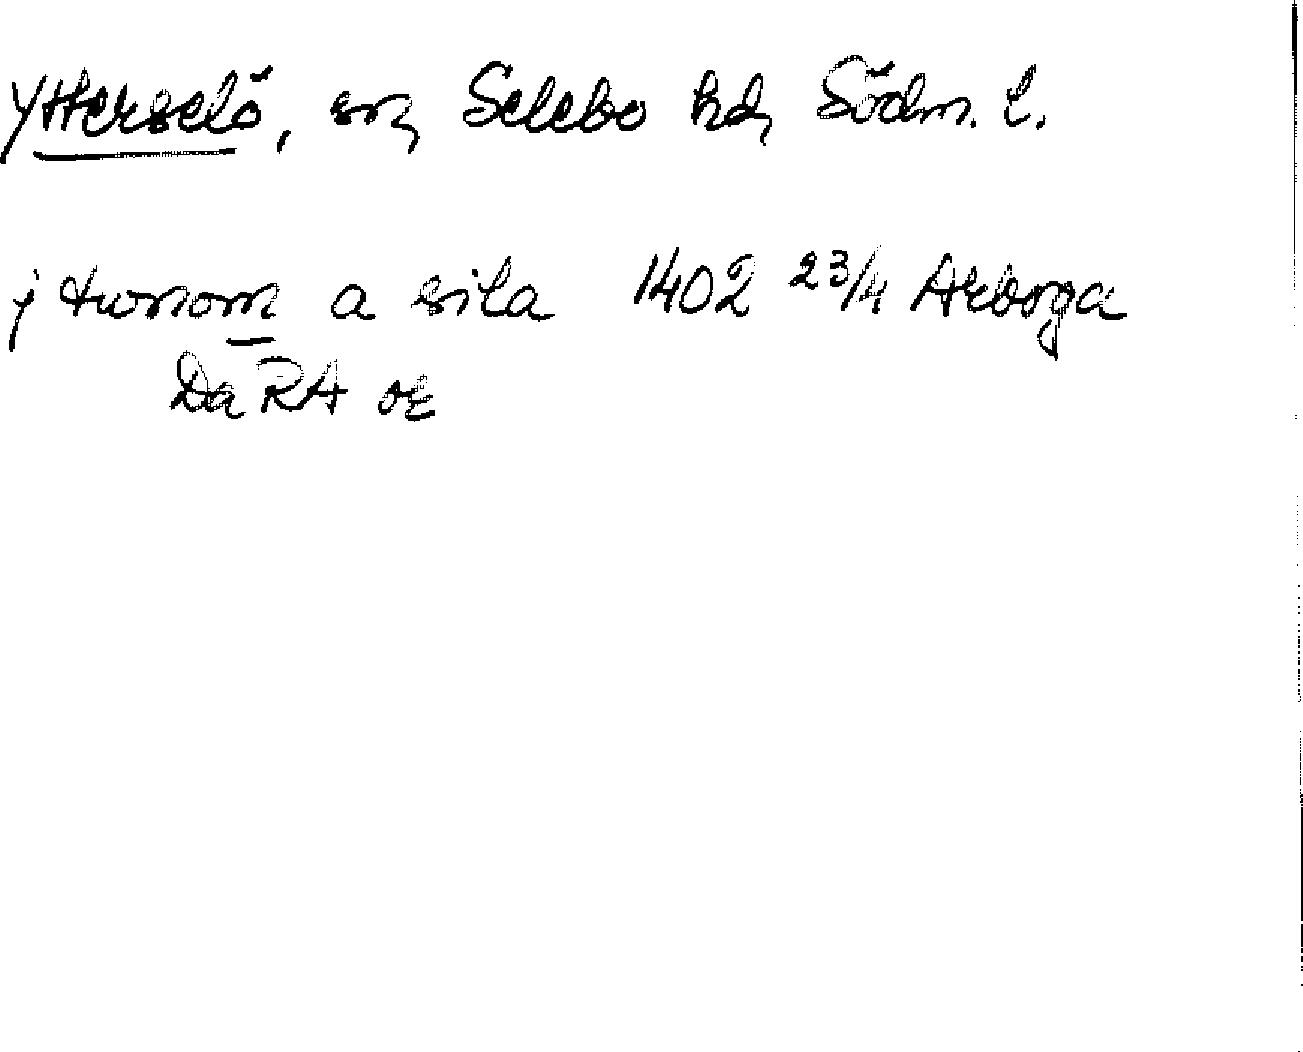 Ytterselö, sn, Selebo hd, Södm. l.
j twnom a sila 1402 23/4 Arboga
Da RA or